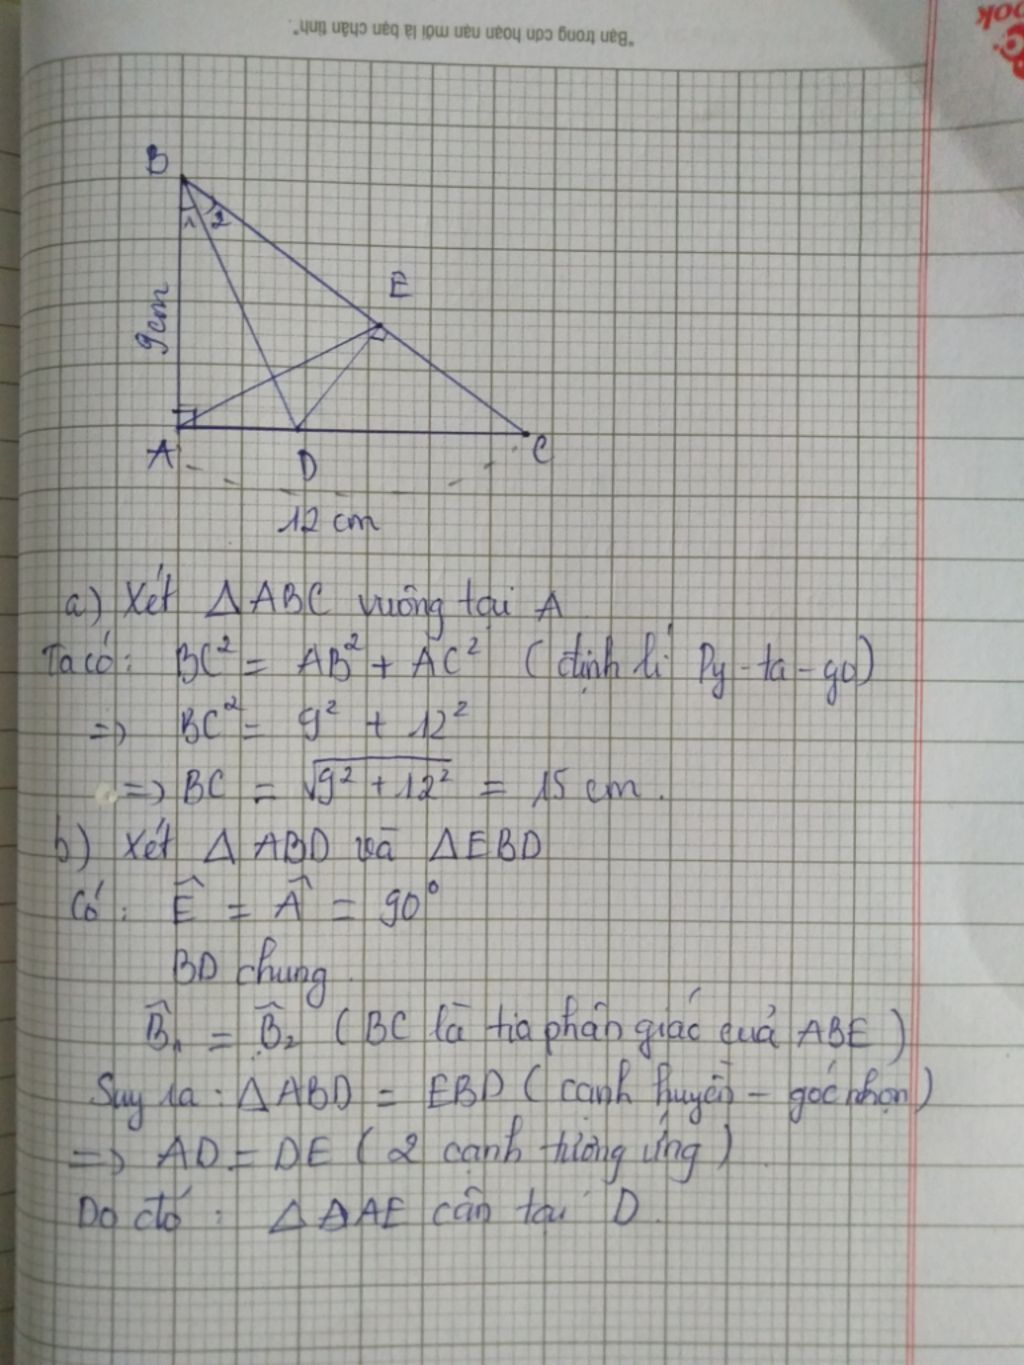 "Bạn trong cơn hoạn nạn mới là bạn chân tình".
B
1 2
E
9cm
A
D
C
12 cm
a) Xét ΔABC vuông tại A
Ta có: BC² = AB² + AC² (định lí Py-ta-go)
=> BC² = 9² + 12²
=> BC = √9² + 12² = 15 cm.
b) Xét Δ ABD và ΔEBD
Có: Ê = Â = 90°
BD chung.
B̂₁ = B̂₂ (BC là tia phân giác quả ABE)
Suy ra: ΔABD = EBD (cạnh huyền - góc nhọn)
=> AD = DE (2 cạnh tương ứng)
Do đó: Δ DAE cân tại D.